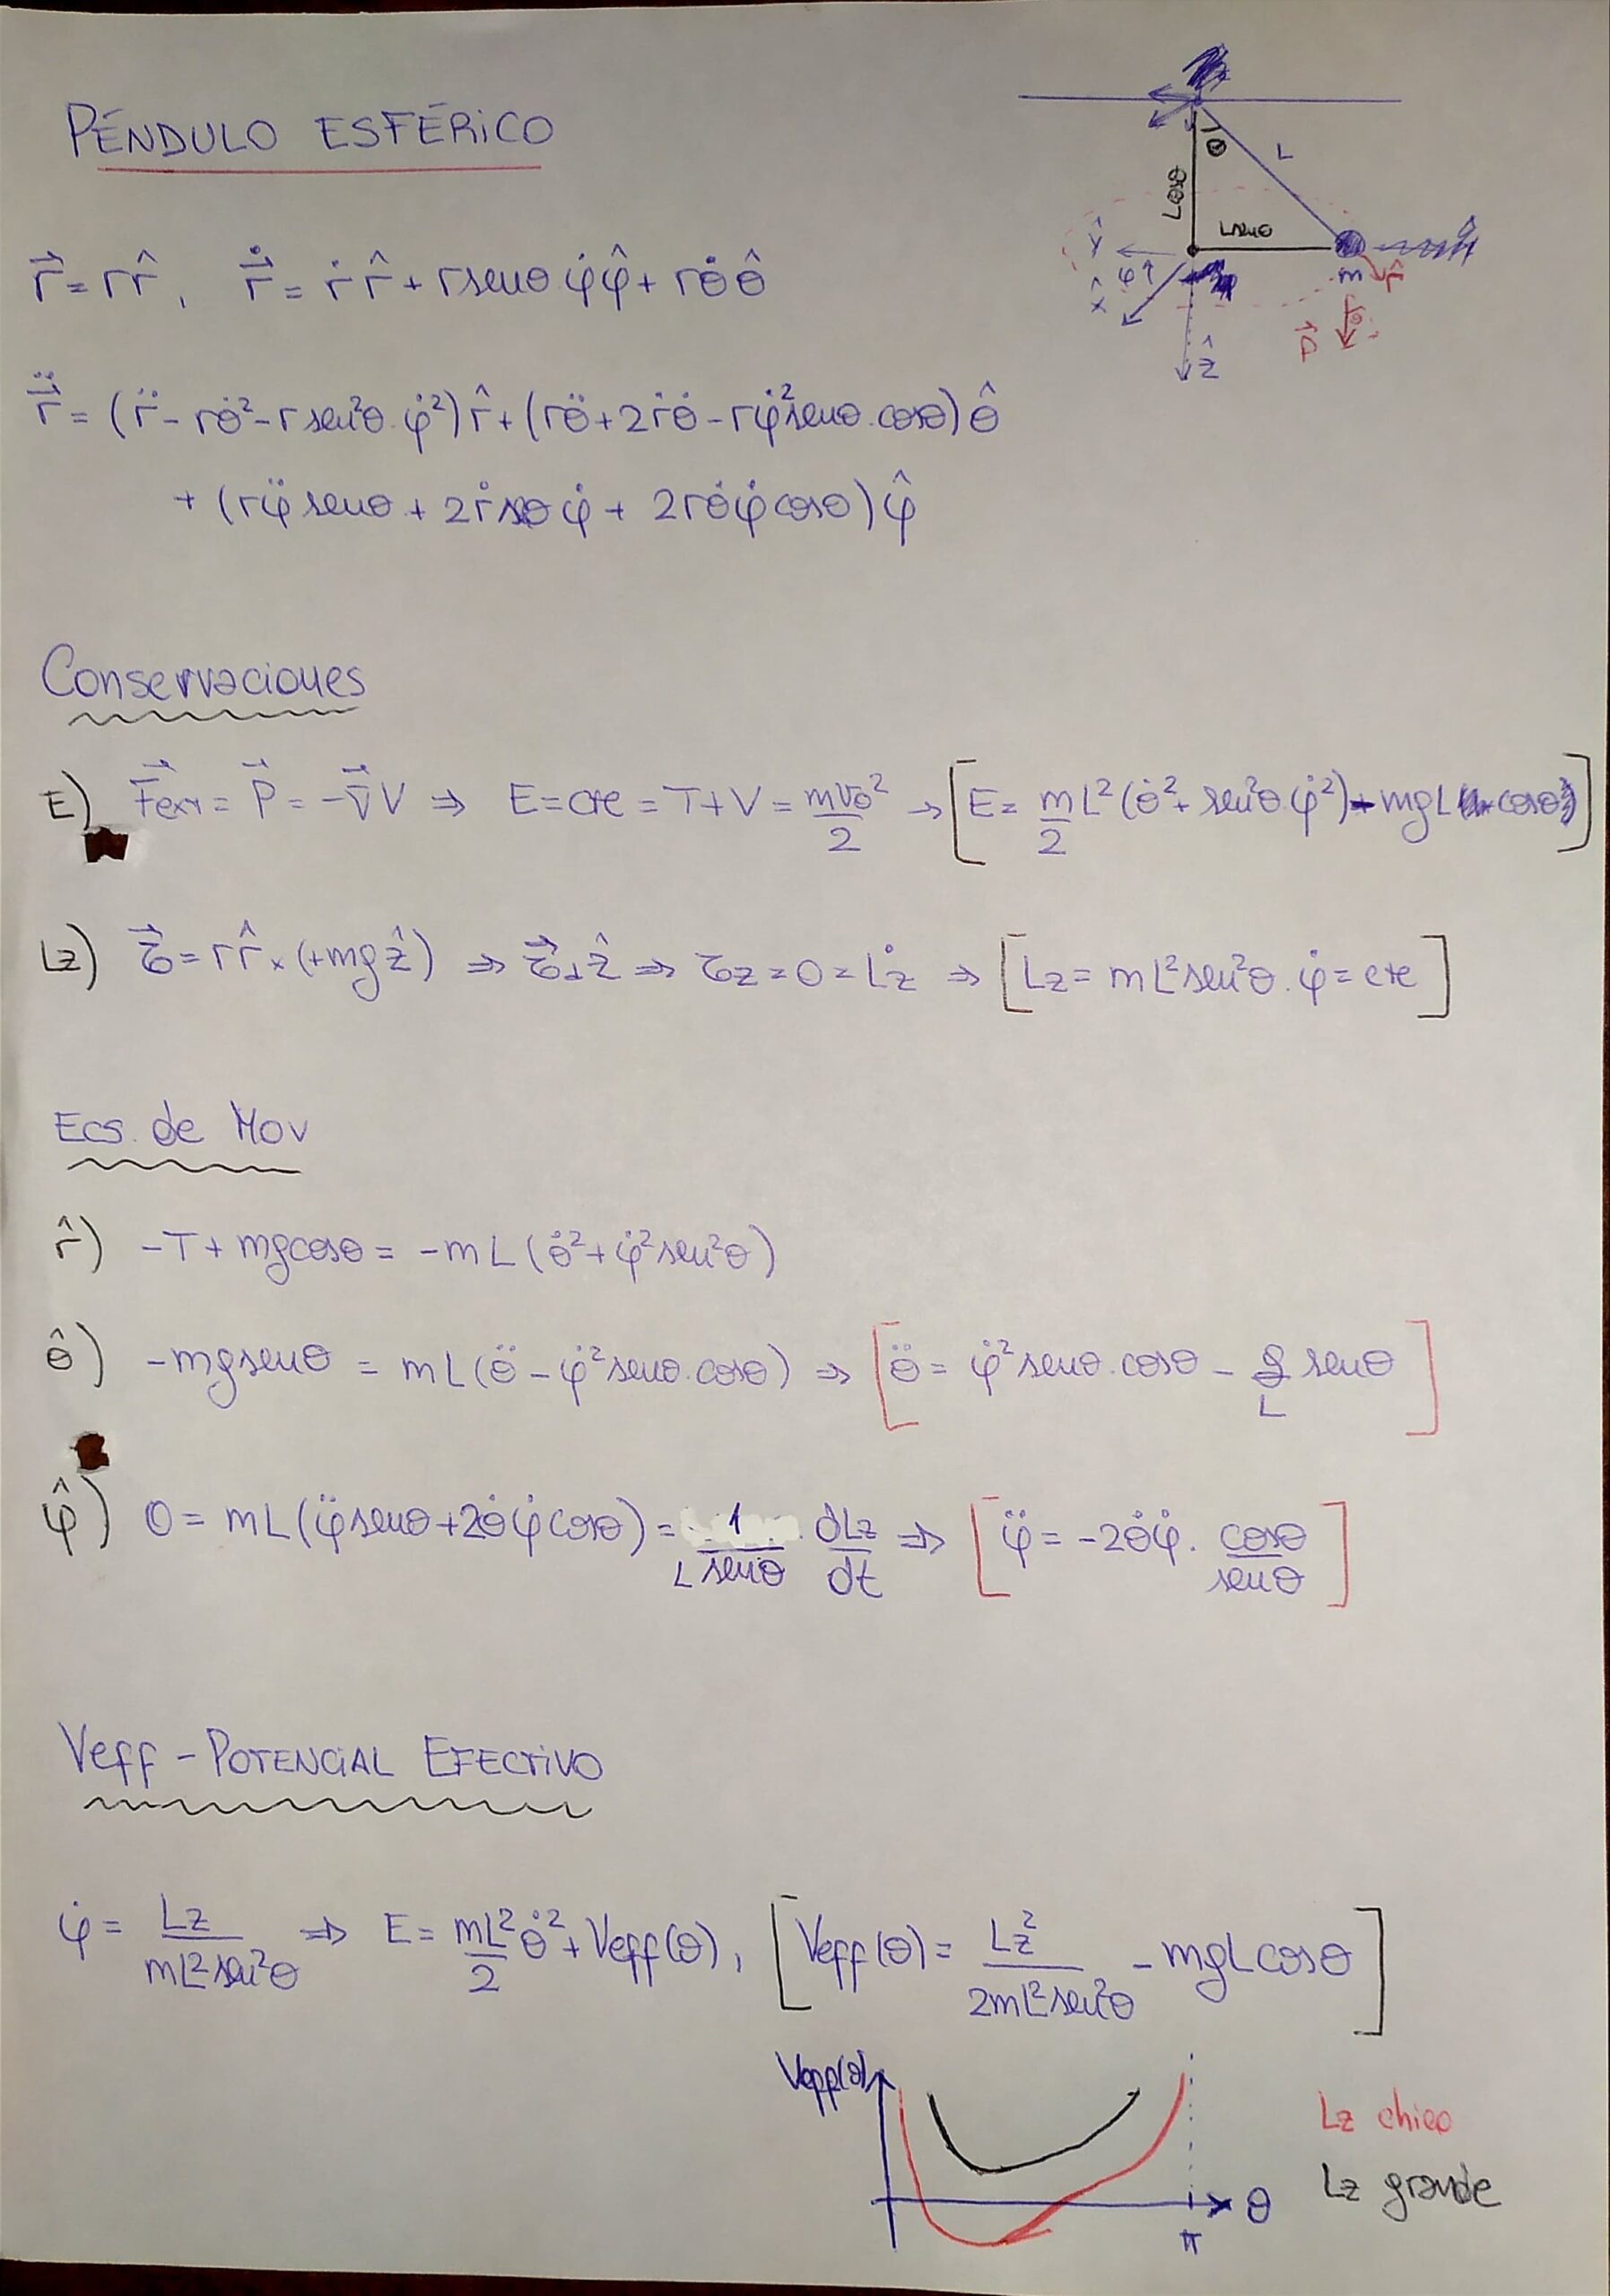 PÉNDULO ESFÉRICO
θ
L
Lcosθ
Lsenθ
ŷ
φ
x̂
m
r̂
P⃗
θ
ẑ
r⃗ = r r̂ , r⃗̇ = ṙ r̂ + r senθ φ̇ φ̂ + r θ̇ θ̂
r⃗̈ = (r̈ - rθ̇² - r sen²θ.φ̇²) r̂ + (rθ̈ + 2ṙθ̇ - rφ̇²senθ.cosθ) θ̂
+ (rφ̈ senθ + 2ṙsθ φ̇ + 2rθ̇φ̇ cosθ) φ̂
Conservaciones
E) F⃗ext = P⃗ = -∇⃗V ⇒ E = cte = T+V = mv₀²/2 → [E = m/2 L²(θ̇² + sen²θ.φ̇²) - mgL cosθ]
Lz) τ⃗ = r r̂ × (+mgẑ) ⇒ τ⃗ ⊥ ẑ ⇒ τz = 0 = L̇z ⇒ [Lz = mL²sen²θ.φ̇ = cte]
Ecs. de Mov
r̂) -T + mgcosθ = -mL(θ̇² + φ̇²sen²θ)
θ̂) -mgsenθ = mL(θ̈ - φ̇²senθ.cosθ) ⇒ [θ̈ = φ̇²senθ.cosθ - g/L senθ]
φ̂) 0 = mL(φ̈senθ + 2θ̇φ̇cosθ) = 1/(L senθ) . dLz/dt ⇒ [φ̈ = -2θ̇φ̇ . cosθ/senθ]
Veff - POTENCIAL EFECTIVO
φ̇ = Lz/(mL²sen²θ) ⇒ E = mL²/2 θ̇² + Veff(θ) , [Veff(θ) = Lz²/(2mL²sen²θ) - mgLcosθ]
Veff(θ)
Lz chico
Lz grande
θ
π